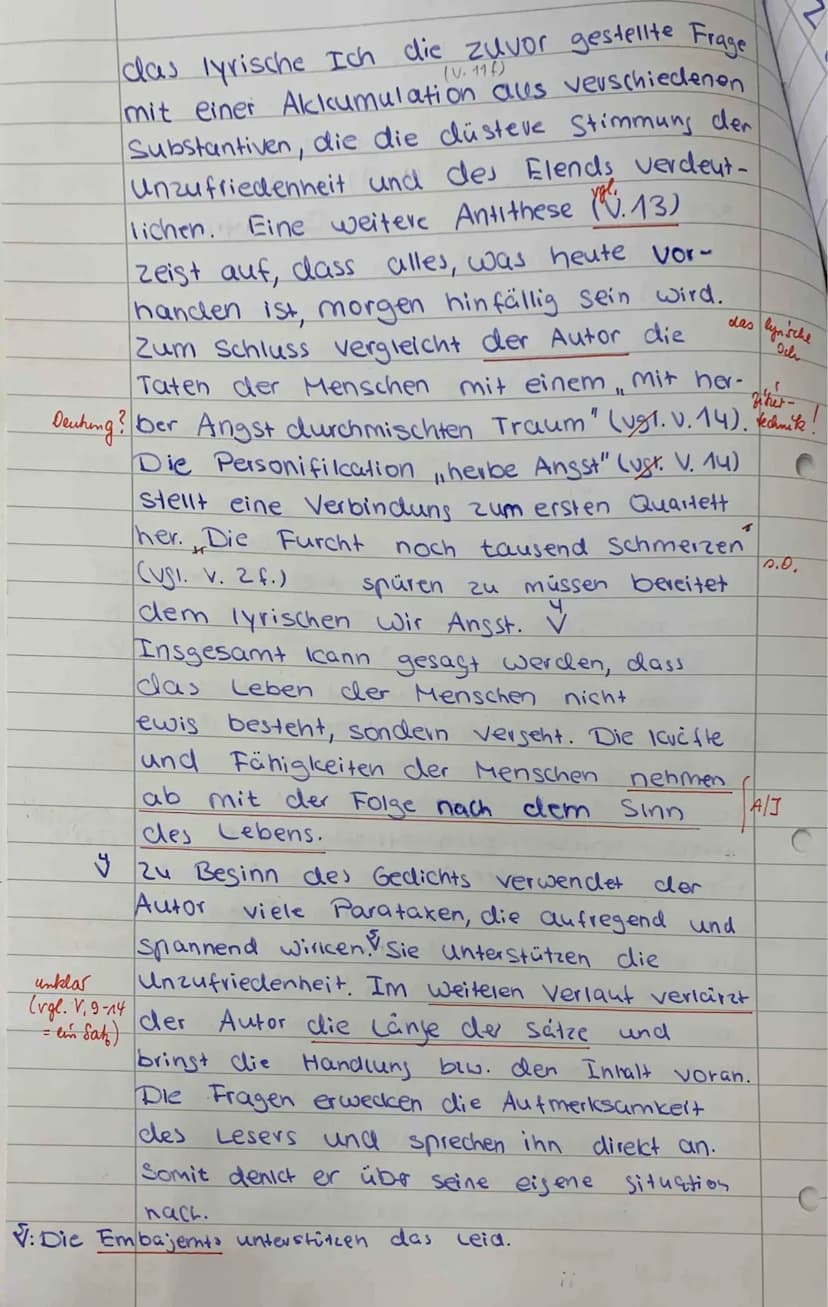 das lyrische Ich die zuvor gestellte Frage
(V. 11f)
mit einer Akkumulation aus verschiedenen
Substantiven, die die düstere Stimmung der
Unzufriedenheit und des Elends verdeut-
lichen. Eine weitere Antithese (V. 13)
vgl.
zeigt auf, dass alles, was heute vor-
handen ist, morgen hinfällig sein wird.
Zum Schluss vergleicht der Autor die
das lyrische
Ich
Taten der Menschen mit einem „mit her-
Deutung? ber Angst durchmischten Traum" (vgl. V. 14).
Zitier-
technik!
Die Personifikation „herbe Angst" (vgl. V. 14)
stellt eine Verbindung zum ersten Quartett
her. „Die Furcht noch tausend Schmerzen"
(vgl. V. 2 f.) spüren zu müssen bereitet
s.o.
dem lyrischen Wir Angst.
Insgesamt kann gesagt werden, dass
das Leben der Menschen nicht
ewig besteht, sondern vergeht. Die Kräfte
und Fähigkeiten der Menschen nehmen
ab mit der Folge nach dem Sinn
A/I
des Lebens.
Zu Beginn des Gedichts verwendet der
Autor viele Parataxen, die aufregend und
spannend wirken. Sie unterstützen die
Unzufriedenheit. Im weiteren Verlauf verkürzt
unklar
(vgl. V. 9-14
= ein Satz)
der Autor die Länge der Sätze und
bringt die Handlung bzw. den Inhalt voran.
Die Fragen erwecken die Aufmerksamkeit
des Lesers und sprechen ihn direkt an.
Somit denkt er über seine eigene Situation
nach.
Die Embajemts unterstützen das Leid.